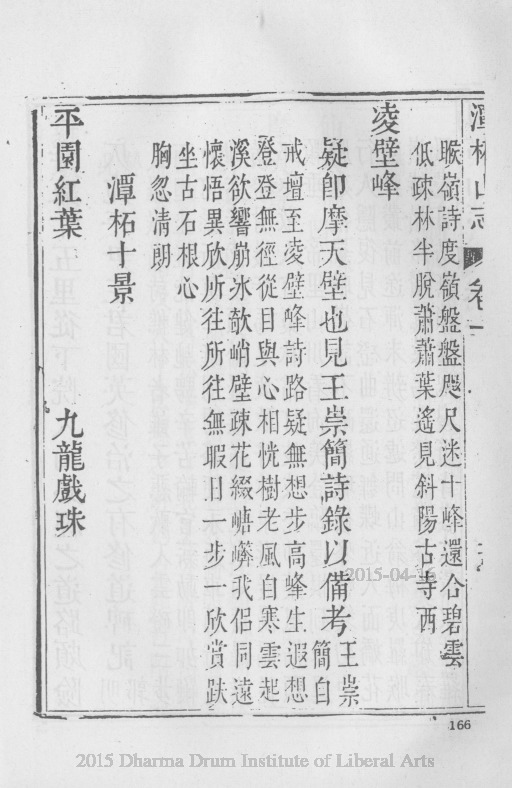 潭柘山志 卷一
睺嶺詩度嶺盤盤咫尺迷千峰還合碧雲
低疎林半脫蕭蕭葉遙見斜陽古寺西
凌壁峰
疑卽摩天壁也見王崇簡詩錄以備考王崇簡自
戒壇至凌壁峰詩路疑無想步高峰生遐想
登登無徑從目與心相恍樹老風自寒雲起
溪欲響崩氷欹峭壁疎花綴我侶同遠
懷悟異欣所往所往無暇日一步一欣賞趺
坐古石根心
胸忽清朗
潭柘十景
平園紅葉 九龍戲珠
2015-04-
166
2015 Dharma Drum Institute of Liberal Arts